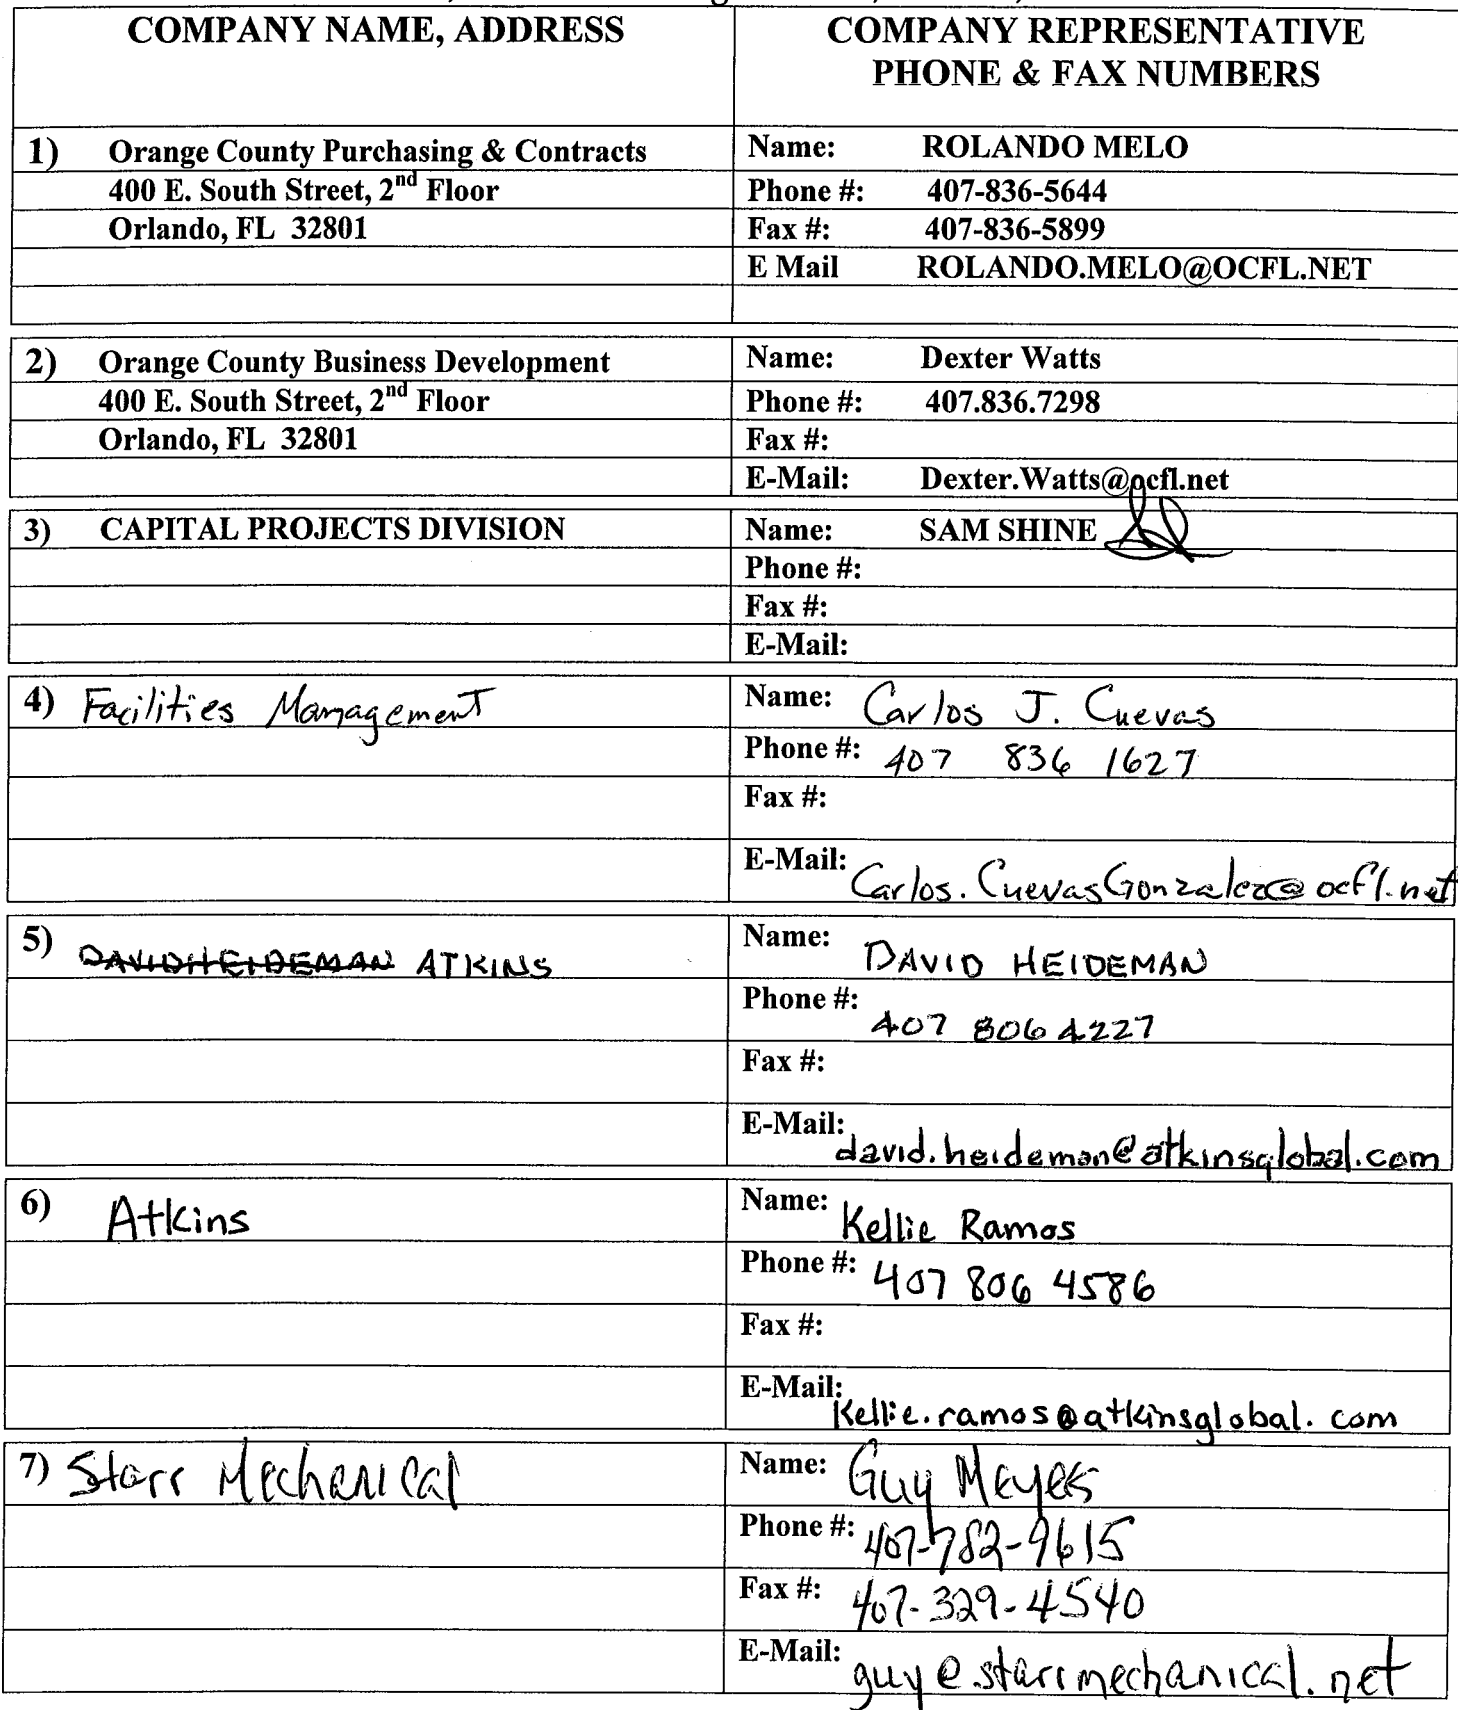 COMPANY NAME, ADDRESS
COMPANY REPRESENTATIVE
PHONE & FAX NUMBERS
1) Orange County Purchasing & Contracts
Name: ROLANDO MELO
400 E. South Street, 2nd Floor
Phone #: 407-836-5644
Orlando, FL 32801
Fax #: 407-836-5899
E Mail ROLANDO.MELO@OCFL.NET
2) Orange County Business Development
Name: Dexter Watts
400 E. South Street, 2nd Floor
Phone #: 407.836.7298
Orlando, FL 32801
Fax #:
E-Mail: Dexter.Watts@ocfl.net
3) CAPITAL PROJECTS DIVISION
Name: SAM SHINE
Phone #:
Fax #:
E-Mail:
4) Facilities Management
Name: Carlos J. Cuevas
Phone #: 407 836 1627
Fax #:
E-Mail: Carlos.CuevasGonzalez@ocfl.net
5) DAVID HEIDEMAN ATKINS
Name: DAVID HEIDEMAN
Phone #: 407 806 4227
Fax #:
E-Mail: david.heideman@atkinsglobal.com
6) Atkins
Name: Kellie Ramos
Phone #: 407 806 4586
Fax #:
E-Mail: Kellie.ramos@atkinsglobal.com
7) Starr Mechanical
Name: Guy
Phone #: 407-782-9615
Fax #: 407-329-4540
E-Mail: guy@starrmechanical.net